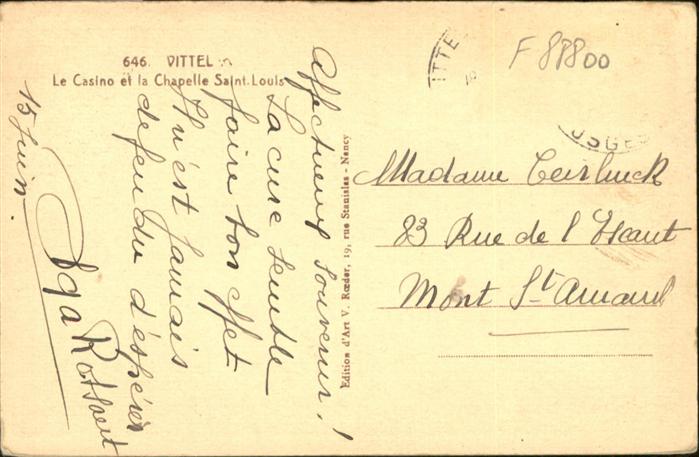 646. VITTEL
Le Casino et la Chapelle Saint-Louis
Affectueux souvenir!
La cure semble
faire son effet
Il n'est jamais
défendu d'espérer
15 juin.
Olga Rotsaert
Edition d'Art V. Rœder, 19, rue Stanislas - Nancy
ITTE
OSGE
F 88800
Madame Teirlinck
83 Rue de l'Escaut
Mont St Amand